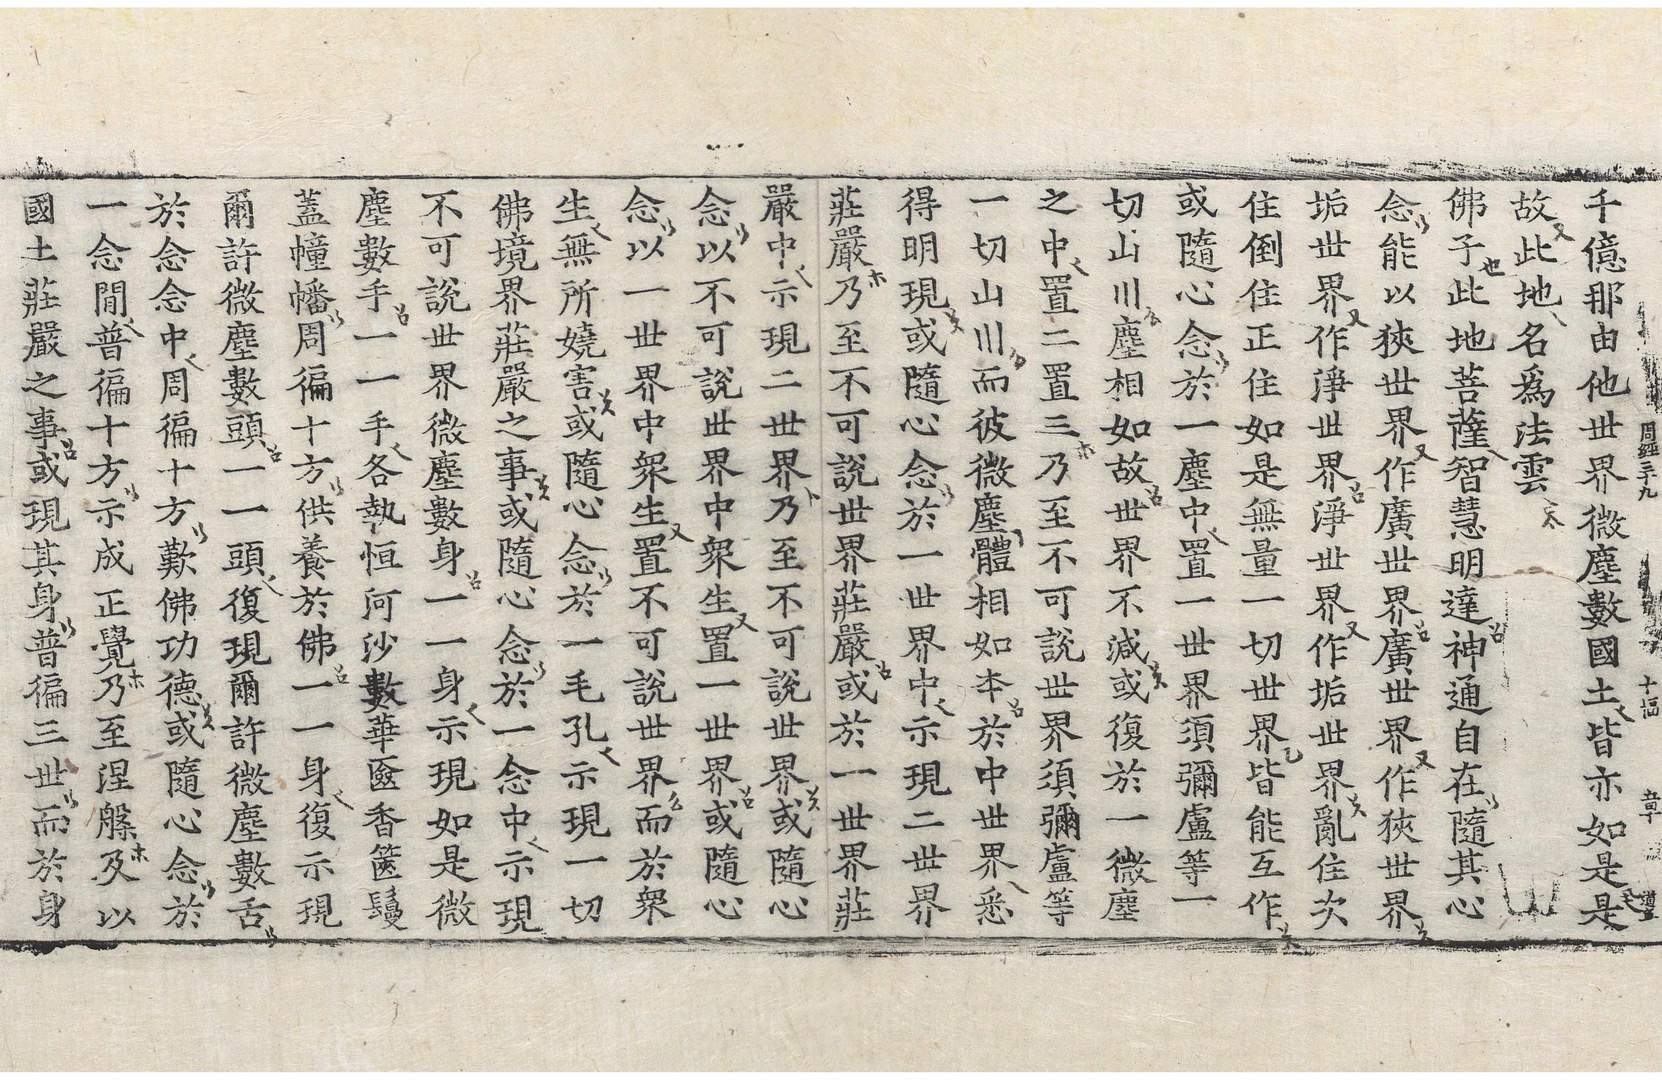 周經三十九 十幅
千億那由他世界微塵數國土皆亦如是是
故此地名爲法雲
佛子此地菩薩智慧明達神通自在隨其心
念能以狹世界作廣世界廣世界作狹世界
垢世界作淨世界淨世界作垢世界亂住次
住倒住正住如是無量一切世界皆能互作
或隨心念於一塵中置一世界須彌盧等一
切山川塵相如故世界不減或復於一微塵
之中置二置三乃至不可說世界須彌盧等
一切山川而彼微塵體相如本於中世界悉
得明現或隨心念於一世界中示現二世界
莊嚴乃至不可說世界莊嚴或於一世界莊
嚴中示現二世界乃至不可說世界或隨心
念以不可說世界中衆生置一世界或隨心
念以一世界中衆生置不可說世界而於衆
生無所嬈害或隨心念於一毛孔示現一切
佛境界莊嚴之事或隨心念於一念中示現
不可說世界微塵數身一一身示現如是微
塵數手一一手各執恒河沙數華奩香篋鬘
蓋幢幡周徧十方供養於佛一一身復示現
爾許微塵數頭一一頭復現爾許微塵數舌
於念念中周徧十方歎佛功德或隨心念於
一念間普徧十方示成正覺乃至涅槃及以
國土莊嚴之事或現其身普徧三世而於身